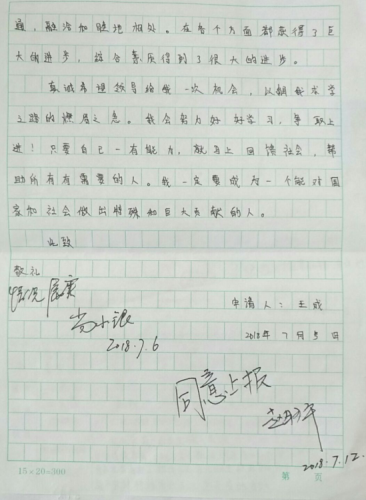 通，融洽和睦地相处。在各个方面都获得了巨
大的进步，综合素质得到了很大的进步。
真诚希望领导给我一次机会，以解我求学
之路的燃眉之急。我会努力好好学习，争取上
进！只要自己一有能力，就马上回馈社会，帮
助所有有需要的人。我一定要成为一个能对国
家和社会做出特殊和巨大贡献的人。
此致
敬礼
情况属实
申请人：王成
2018.7.6
2018年7月5日
同意上报
2018.7.12.
15×20=300
第 页